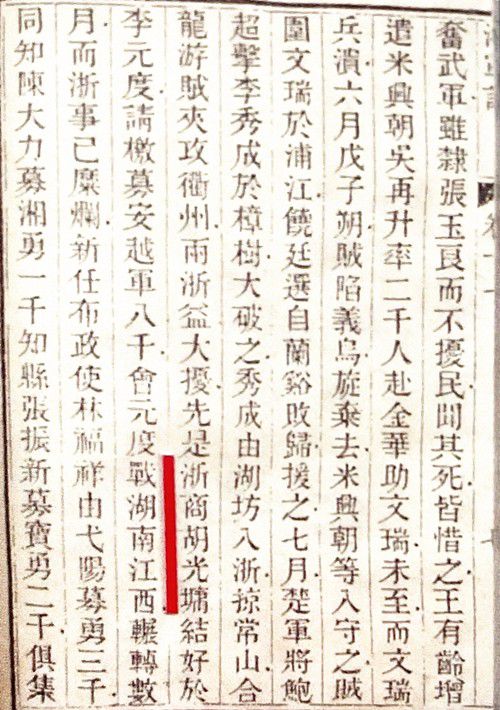 奮武軍雖隸張玉良而不擾民聞其死皆惜之王有齡增
遣米興朝吳再升率二千人赴金華助文瑞未至而文瑞
兵潰六月戊子朔賊陷義烏旋棄去米興朝等入守之賊
圍文瑞於浦江饒廷選自蘭谿敗歸援之七月楚軍將鮑
超擊李秀成於樟樹大破之秀成由湖坊入浙掠常山合
龍游賊夾攻衢州兩浙益大擾先是浙商胡光墉結好於
李元度請檄募安越軍八千會元度戰湖南江西輾轉數
月而浙事已糜爛新任布政使林福祥由弋陽募勇三千
同知陳大力募湘勇一千知縣張振新募寶勇二千俱集